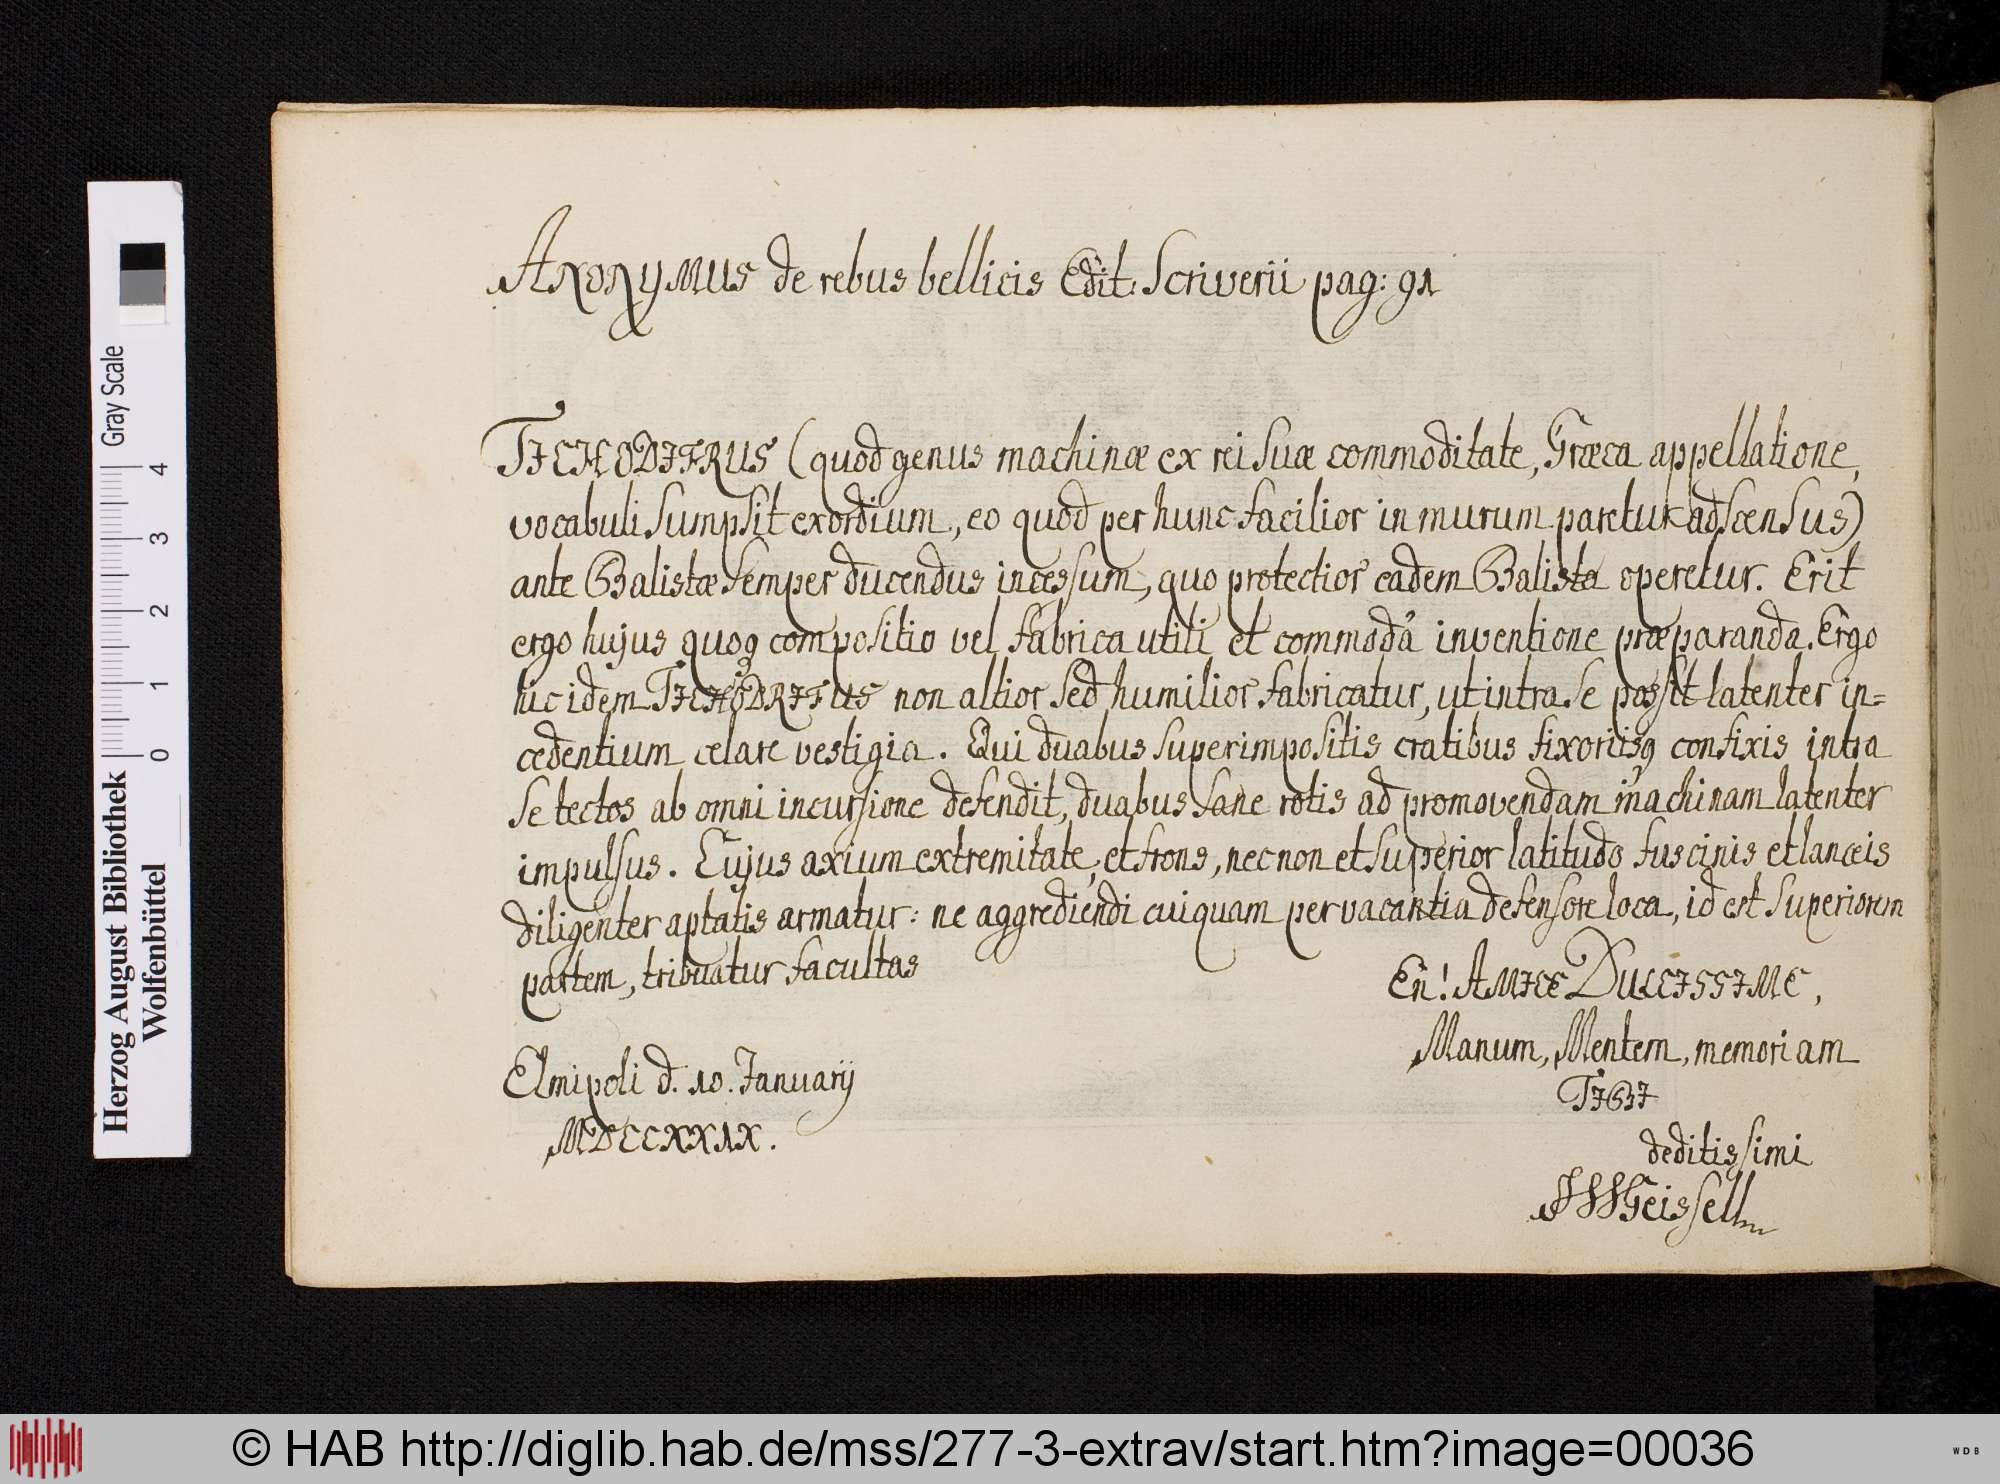 Anonymus de rebus bellicis Edit: Scriverii pag: 91
TICHODIFRUS (quod genus machinæ ex rei suæ commoditate, Græca appellatione,
vocabuli sumpsit exordium, eo quod per hunc facilior in murum paretur adscensus)
ante Balistæ semper ducendus incessum, quo protectior eadem Balista operetur. Erit
ergo hujus quoq compositio vel fabrica utili et commodâ inventione præparanda. Ergo
hic idem TICHODRIFUS non altior sed humilior fabricatur, ut intra se possit latenter in=
cedentium celare vestigia. Qui duabus superimpositis cratibus fixoriisq confixis intra
se tectos ab omni incursione defendit, duabus sane rotis ad promovendam machinam latenter
impulsus. Cujus axium extremitate, et frons, nec non et superior latitudo fuscinis et lanceis
diligenter aptatis armatur: ne aggrediendi cuiquam per vacantia defensore loca, id est superiorem
partem, tribuatur facultas
En! AMICE DULCISSIME,
Manum, Mentem, memoriam
TIBI
deditissimi
Elmipoli d. 10. Januarij
MDCCXXIX.
Geissell
Herzog August Bibliothek
Wolfenbüttel
0 1 2 3 4
Gray Scale
© HAB http://diglib.hab.de/mss/277-3-extrav/start.htm?image=00036
WDB